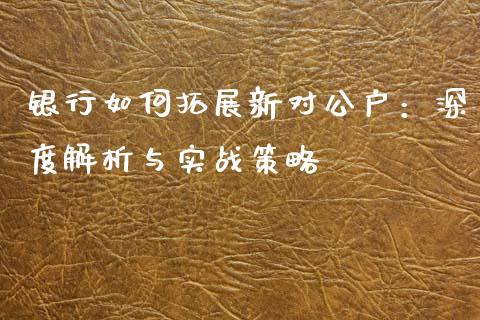 银行如何拓展新对公户：深
度解析与实战策略